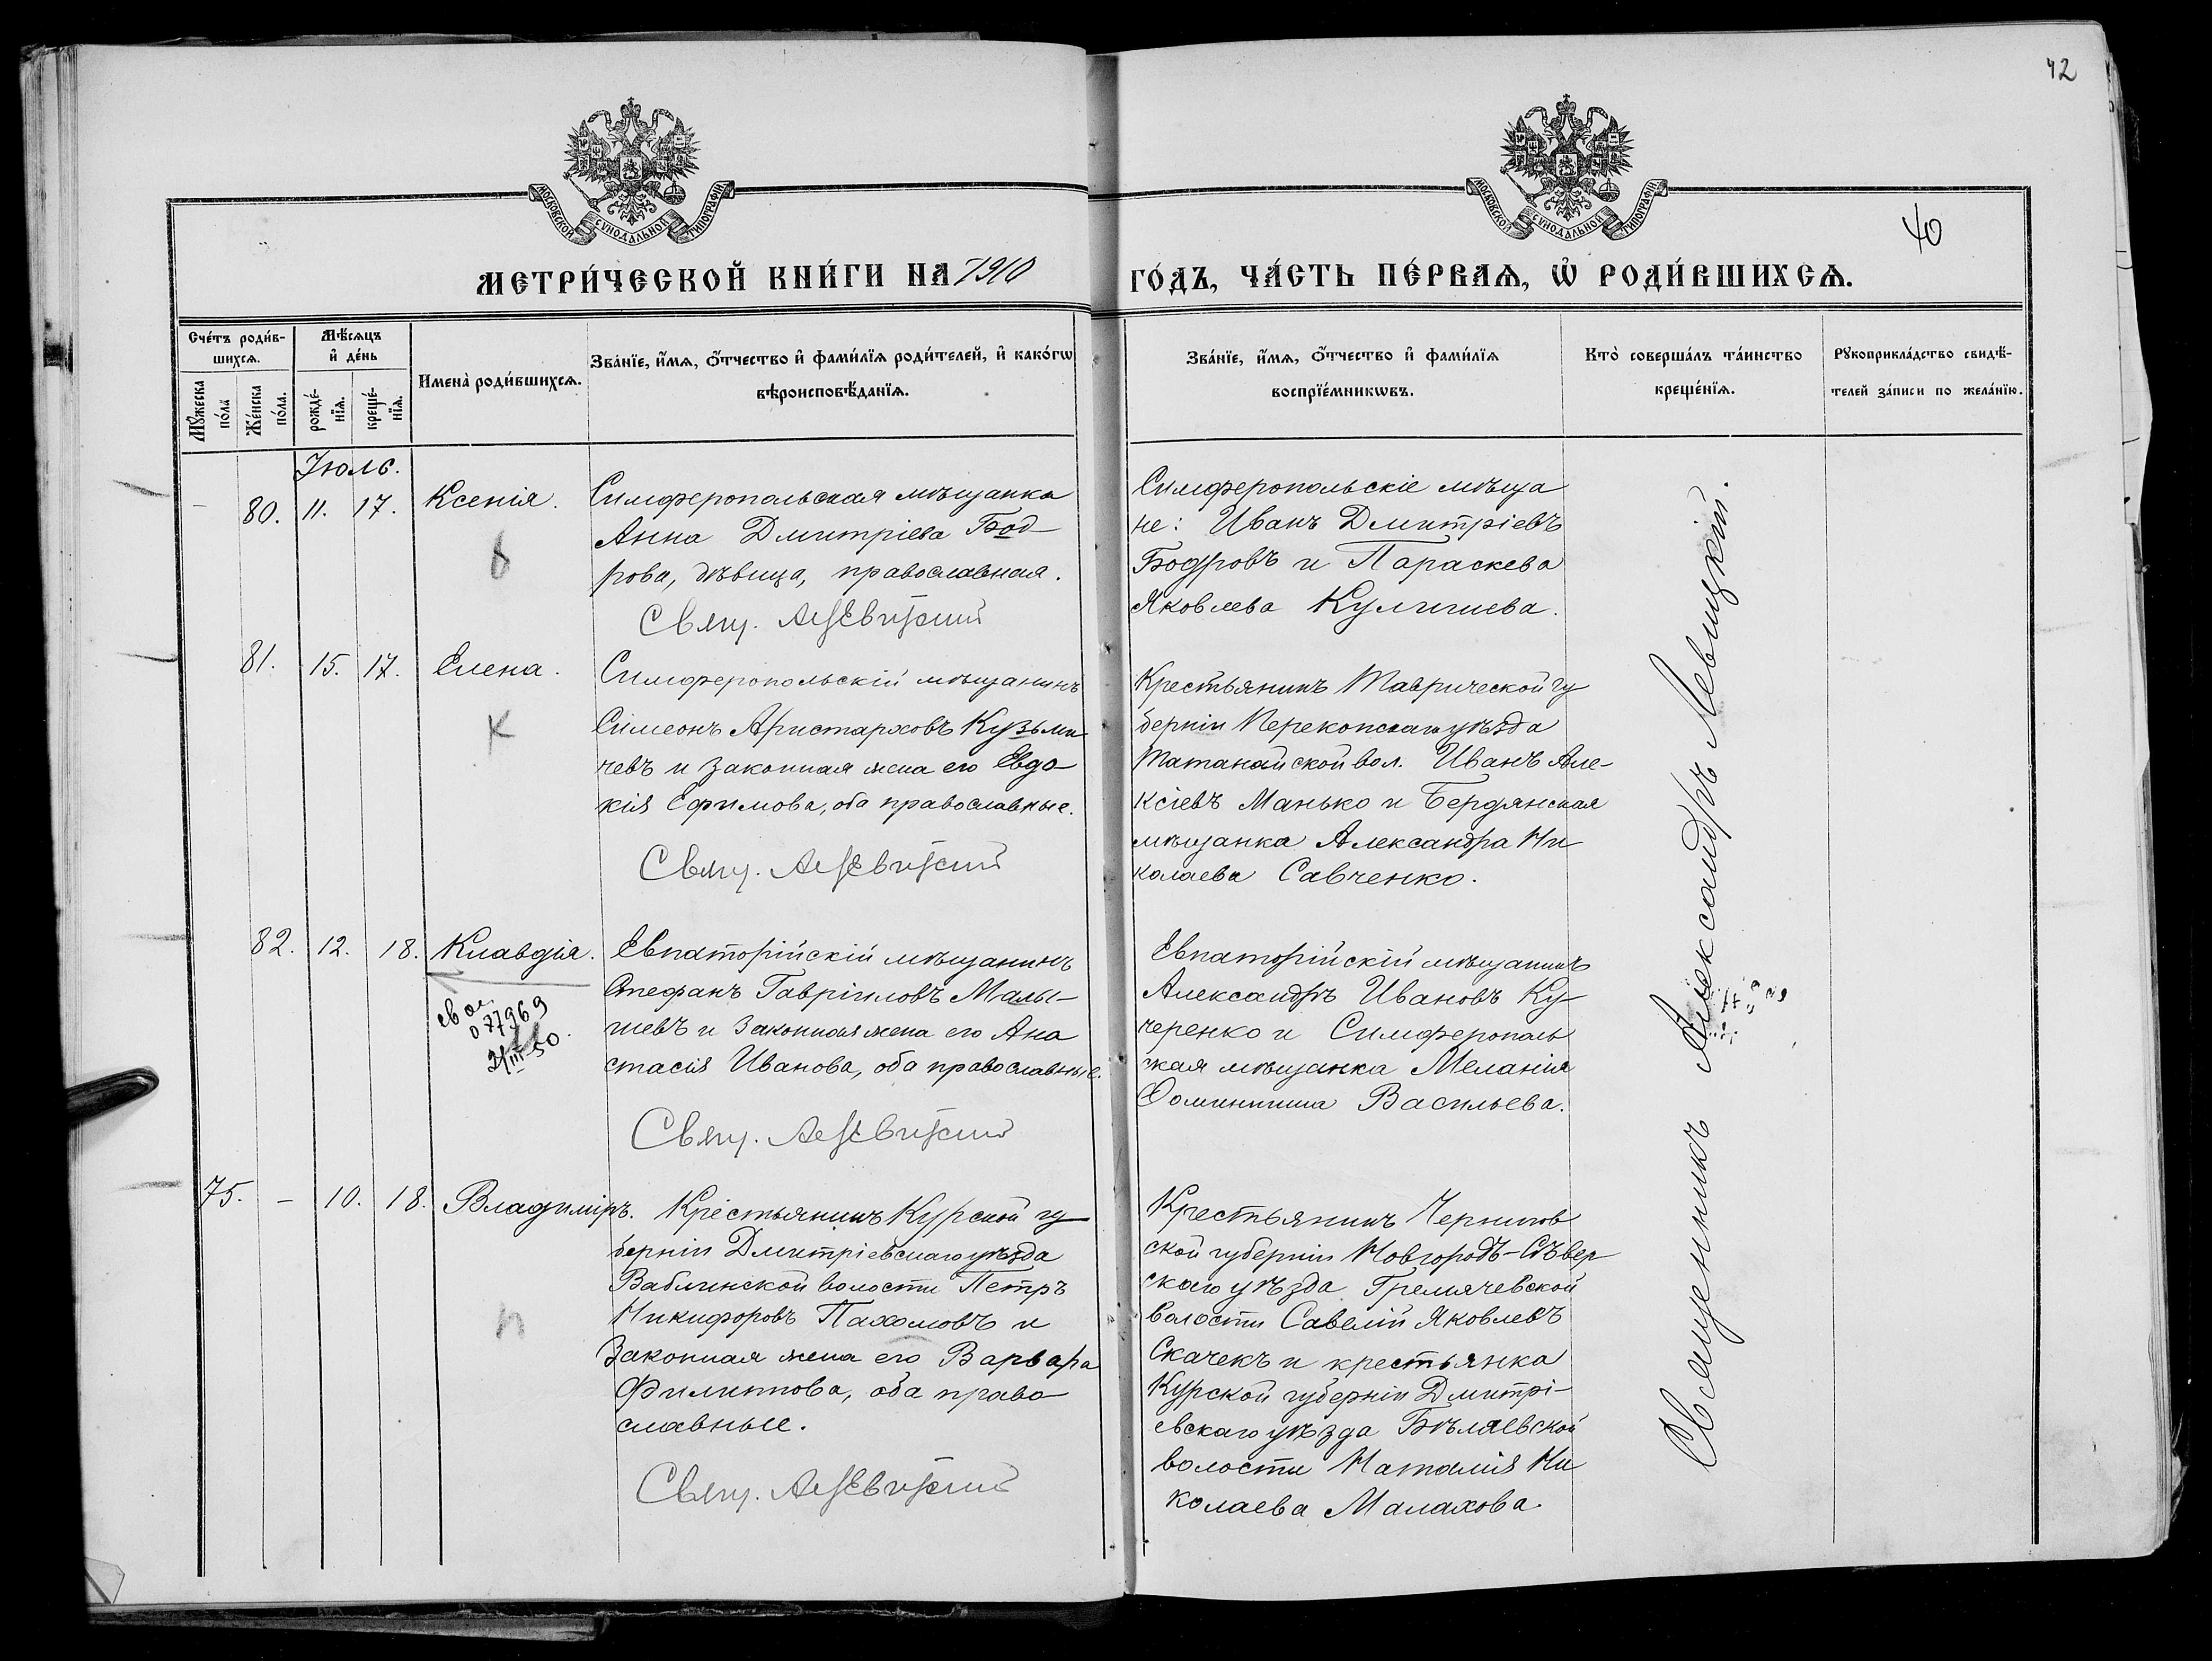 42
40
МОСКОВСКОЙ СУНОДАЛЬНОЙ ТИПОГРАФІИ
МОСКОВСКОЙ СУНОДАЛЬНОЙ ТИПОГРАФІИ
МЕТРИ́ЧЕСКОЙ КНИ́ГИ НА 1910 ГО́ДЪ, ЧА́СТЬ ПЕ́РВАѦ, Ѡ҆ РОДИ́ВШИХСѦ.
Сче́тъ роди́в-
шихсѧ.
Мꙋ́жеска по́ла
Же́нска по́ла.
Мѣ́сѧцъ
и҆ де́нь
рожде́-
нїѧ.
креще́-
нїѧ.
Имена̀ роди́вшихсѧ.
Зва́нїе, и҆́мѧ, ѻ҆́тчество и҆ фами́лїѧ роди́телей, и҆ како́гѡ
вѣроисповѣ́данїѧ.
Зва́нїе, и҆́мѧ, ѻ҆́тчество и҆ фами́лїѧ
воспрїе́мникѡвъ.
Кто̀ соверша́лъ та́инство
креще́нїѧ.
Рꙋкоприкла́дство свидѣ́-
телей за́писи по жела́нїю.
Іюль.
– 80. 11. 17. Ксенія.
Симферопольская мѣщанка
Анна Дмитріева Бод-
рова, дѣвица, православная.
Свящ. Ал Левитский
Симферопольскіе мѣща
не: Иванъ Дмитріевъ
Бодровъ и Параскева
Яковлева Куличиева.
81. 15. 17. Елена.
К
Симферопольскій мѣщанинъ
Сімеонъ Аристарховъ Кузьми
чевъ и законная жена его Евдо-
кія Ефимова, оба православные.
Свящ. Ал Левитский
Крестьянинъ Таврической гу
берніи Перекопскаго уѣзда
Татанайской вол. Иванъ Але-
ксіевъ Манько и Бердянская
мѣщанка Александра Ни
колаева Савченко.
82. 12. 18. Клавдія.
св ол
077969
21/III-50.
Евпаторійскій мѣщанинъ
Стефанъ Гавріиловъ Малы-
шевъ и законная жена его Ана
стасія Иванова, оба православные.
Свящ. Ал Левитский
Евпаторійскій мѣщанинъ
Александръ Ивановъ Ку-
черенко и Симферополь
ская мѣщанка Меланія
Ѳоминишна Васильева.
75. – 10. 18. Владиміръ.
п
Крестьянинъ Курской гу
берніи Дмитріевскаго уѣзда
Ваблинской волости Петръ
Никифоровъ Пахомовъ и
законная жена его Варвара
Филиппова, оба право
славные.
Свящ. Ал Левитский
Крестьянинъ Чернигов
ской губерніи Новгородъ-Сѣвер
скаго уѣзда Гремячевской
волости Савелій Яковлевъ
Скачекъ и крестьянка
Курской губерніи Дмитрі-
евскаго уѣзда Бѣляевской
волости Наталія Ни
колаева Малахова.
Священникъ Александръ Левицкій.